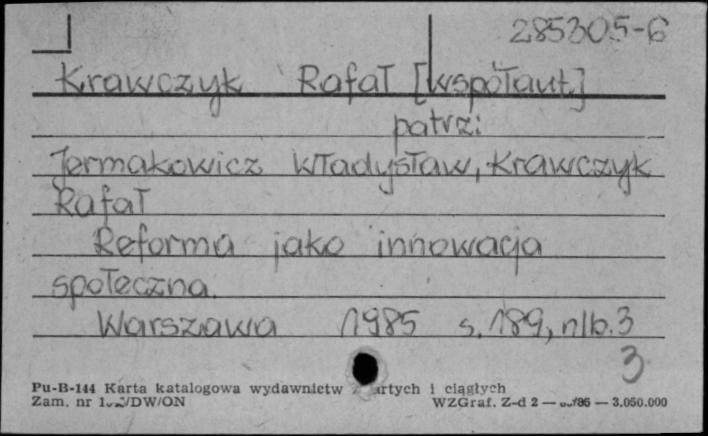 285305-6
Krawczyk Rafał [współaut.]
patrz:
Jermakowicz Władysław, Krawczyk
Rafał
Reforma jako innowacja
społeczna.
Warszawa 1985 s. 189, nlb. 3
3
Pu-B-144 Karta katalogowa wydawnictw i ciągłych
Zam. nr /DW/ON WZGraf. Z-d 2 — /85 — 3.050.000